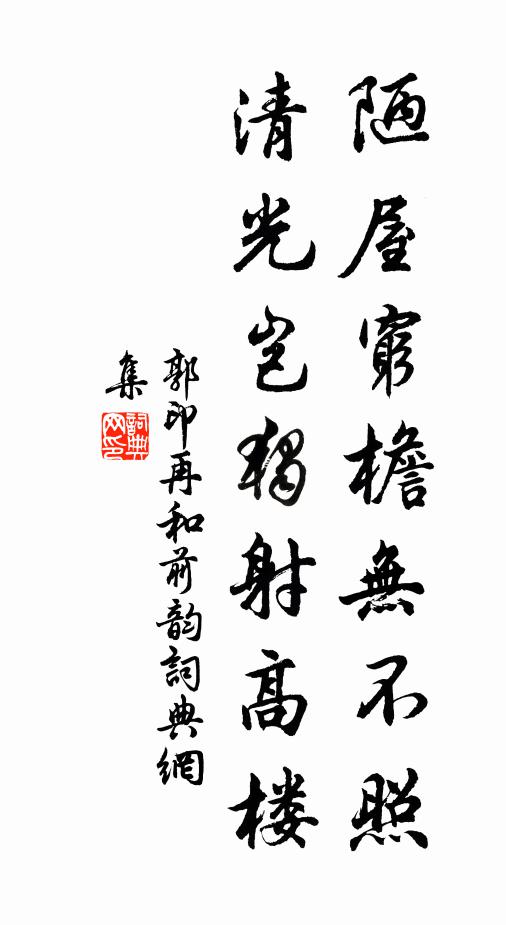 陋屋窮檐無不照
清光岂獨射高楼
郭印再和前韵詞典網
集
詞典网印